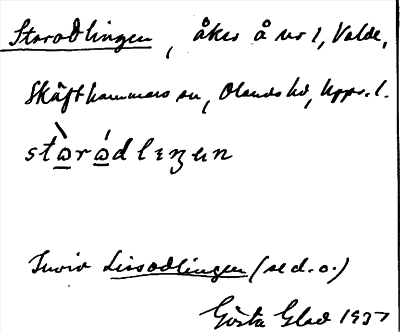 Storodlingen, åker å nr 1, Valde,
Skäfthammars sn, Olands hd, Upps. l.
Invid Lissodlingen (se d. o.)
Gösta Glad 1937